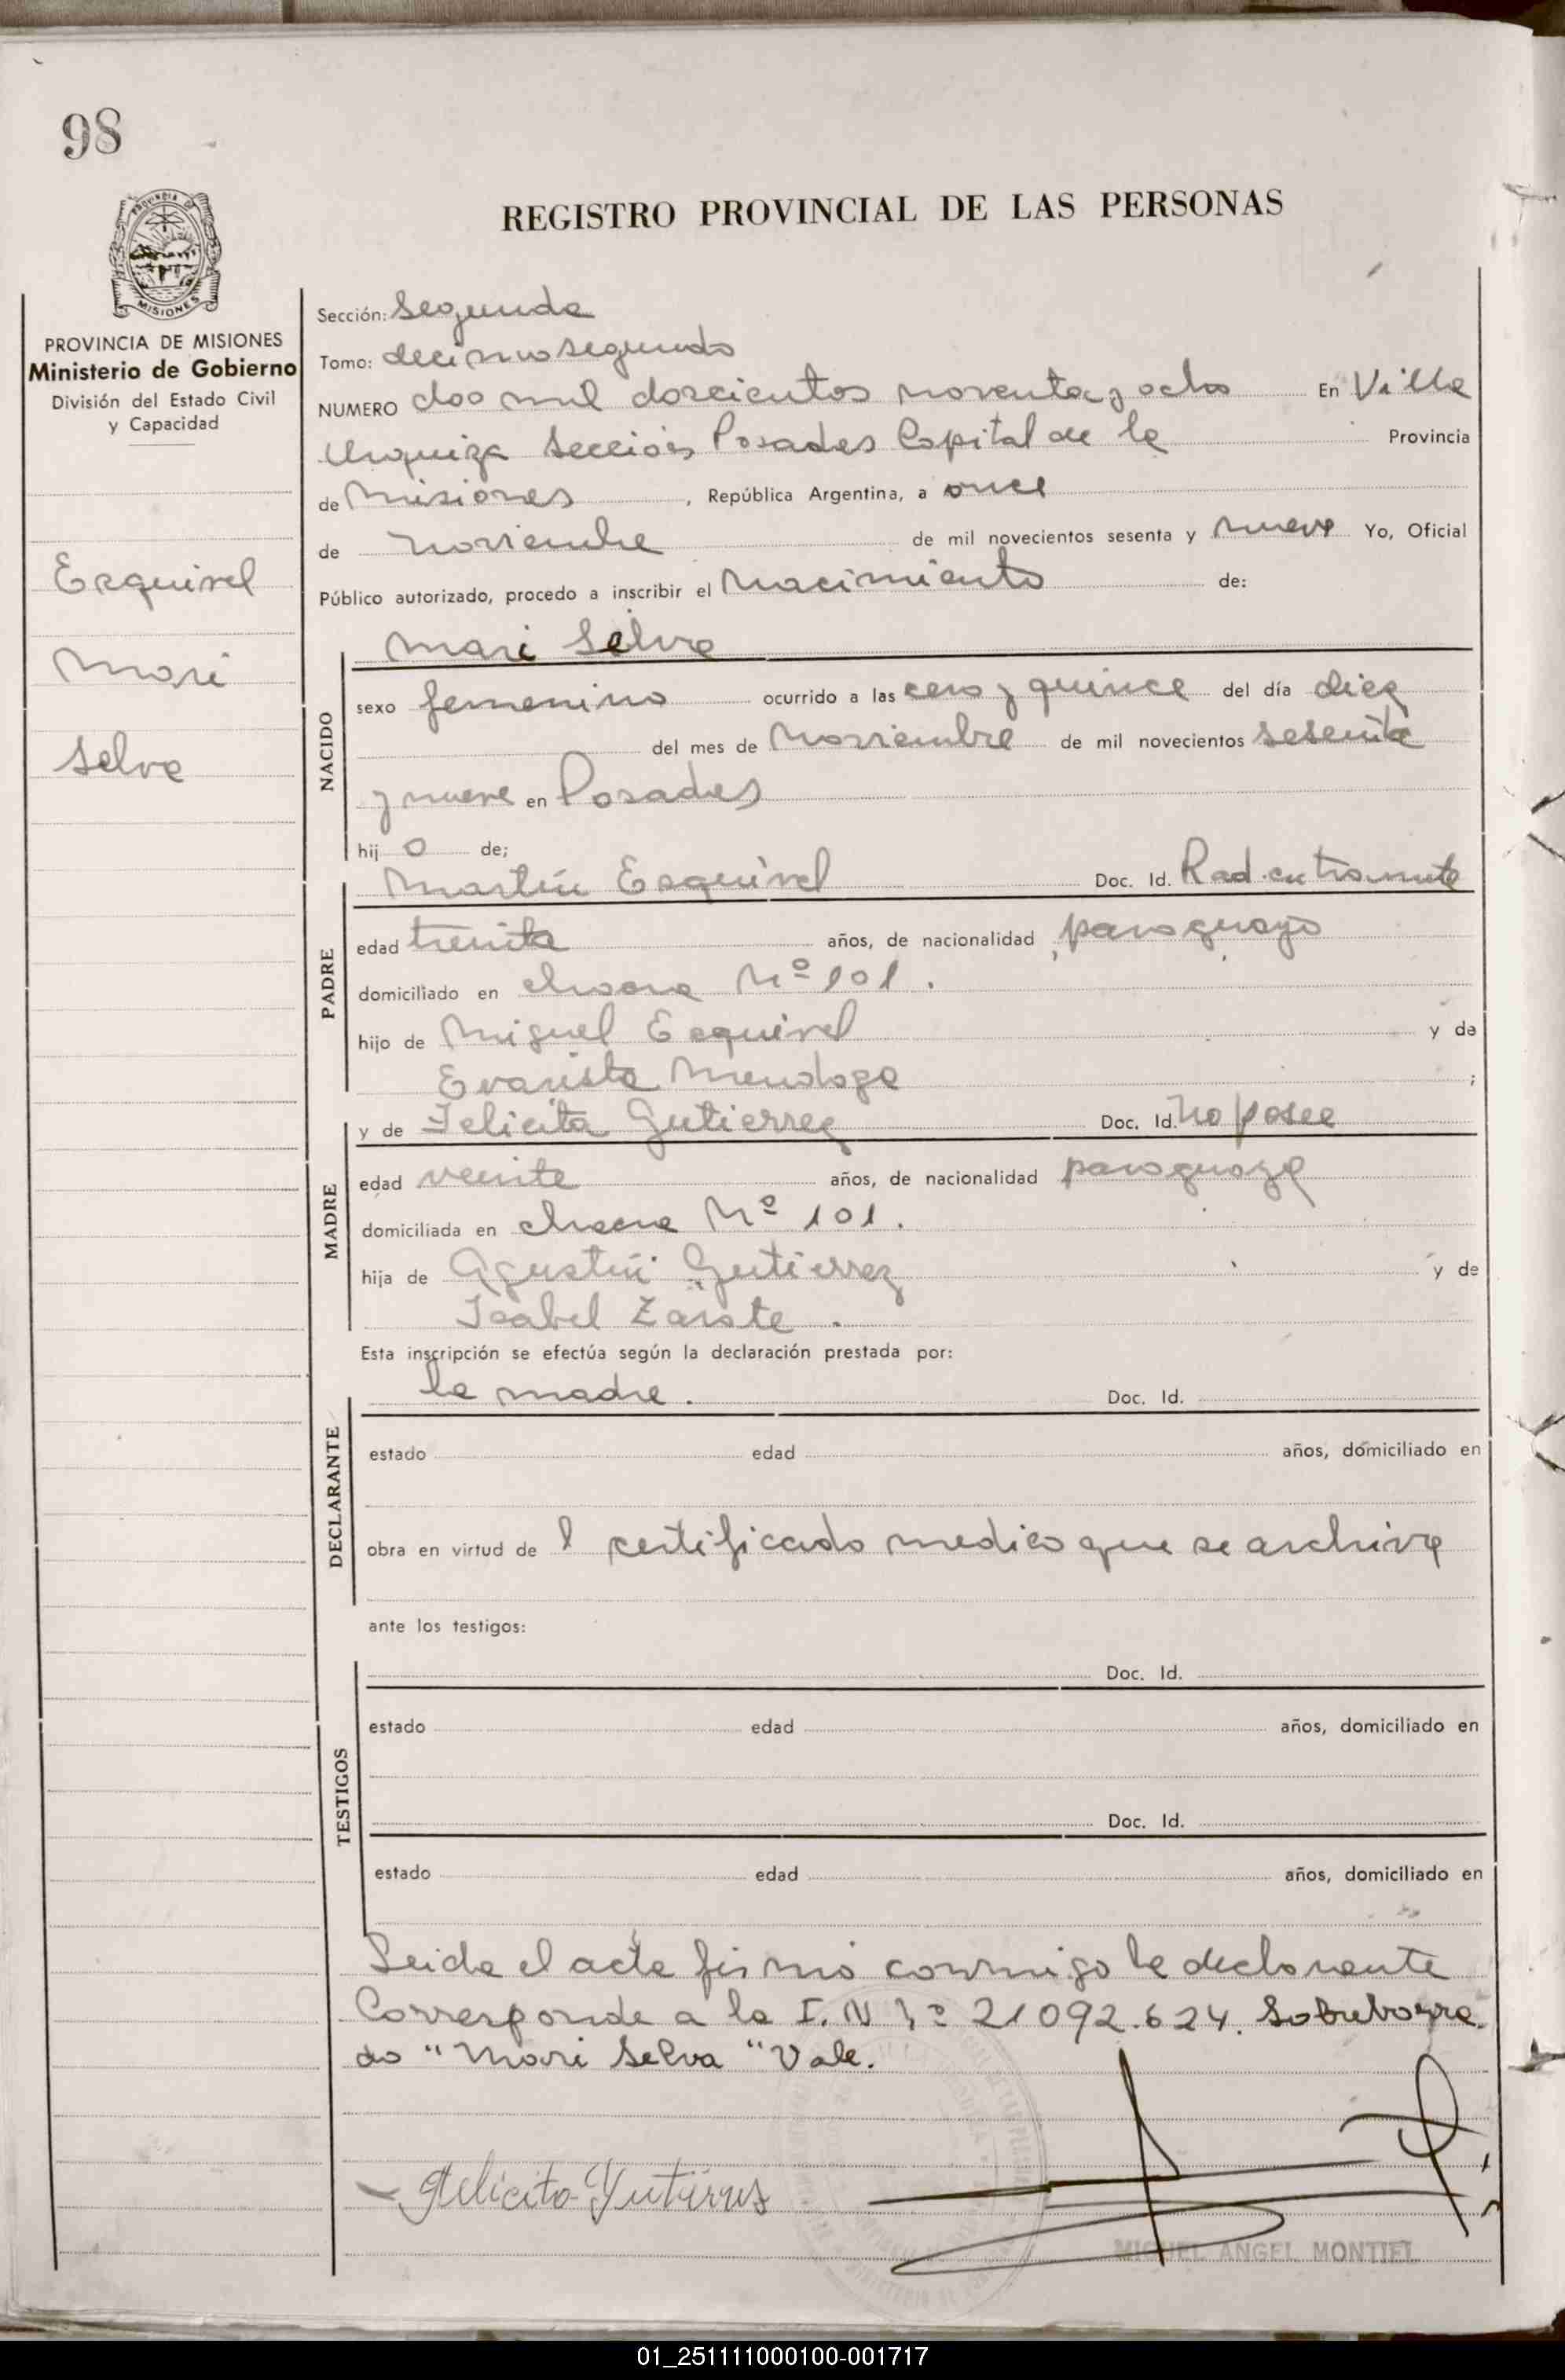 98
PROVINCIA DE
MISIONES
REGISTRO PROVINCIAL DE LAS PERSONAS
PROVINCIA DE MISIONES
Ministerio de Gobierno
División del Estado Civil
y Capacidad
Esquivel
Mari
Selva
Sección: Segunda
Tomo: decimosegundo
NUMERO dos mil doscientos noventa y ocho En Villa
Urquiza Sección Posadas Capital de la Provincia
de Misiones, República Argentina, a once
de Noviembre de mil novecientos sesenta y nueve Yo, Oficial
Público autorizado, procedo a inscribir el Nacimiento de:
Mari Selva
NACIDO
sexo femenino ocurrido a las cero y quince del día diez
del mes de Noviembre de mil novecientos sesenta
y nueve en Posadas
hij a de;
Martín Esquivel Doc. Id. Rad. en tramite
PADRE
edad treinta años, de nacionalidad paraguayo
domiciliado en chacra Nº 101.
hijo de Miguel Esquivel y de
Evarista Mendoza ;
y de Felicita Gutierrez Doc. Id. No posee
MADRE
edad veinte años, de nacionalidad paraguaya
domiciliada en chacra Nº 101.
hija de Agustín Gutierrez y de
Isabel Zarate.
Esta inscripción se efectúa según la declaración prestada por:
la madre. Doc. Id.
DECLARANTE
estado edad años, domiciliado en
obra en virtud de l certificado medico que se archiva
ante los testigos:
Doc. Id.
TESTIGOS
estado edad años, domiciliado en
Doc. Id.
estado edad años, domiciliado en
Leida el acta firmó conmigo la declarante
Corresponde a la I. N Nº 21092.624. Sobreborra
do "Mari Selva" Vale.
Felicita Gutierres
MIGUEL ANGEL MONTIEL
01_251111000100-001717